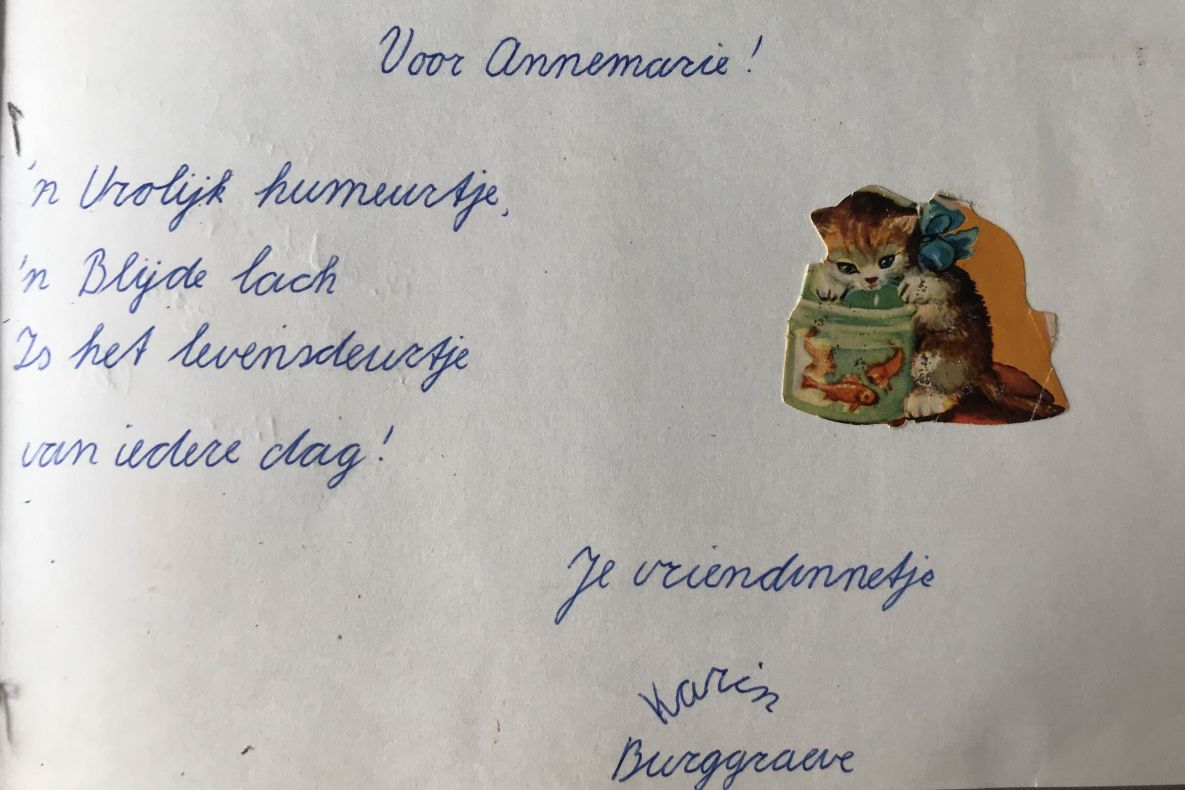 Voor Annemarie!
'n Vrolijk humeurtje,
'n Blijde lach
Is het levensdeurtje
van iedere dag!
Je vriendinnetje
Karin
Burggraeve